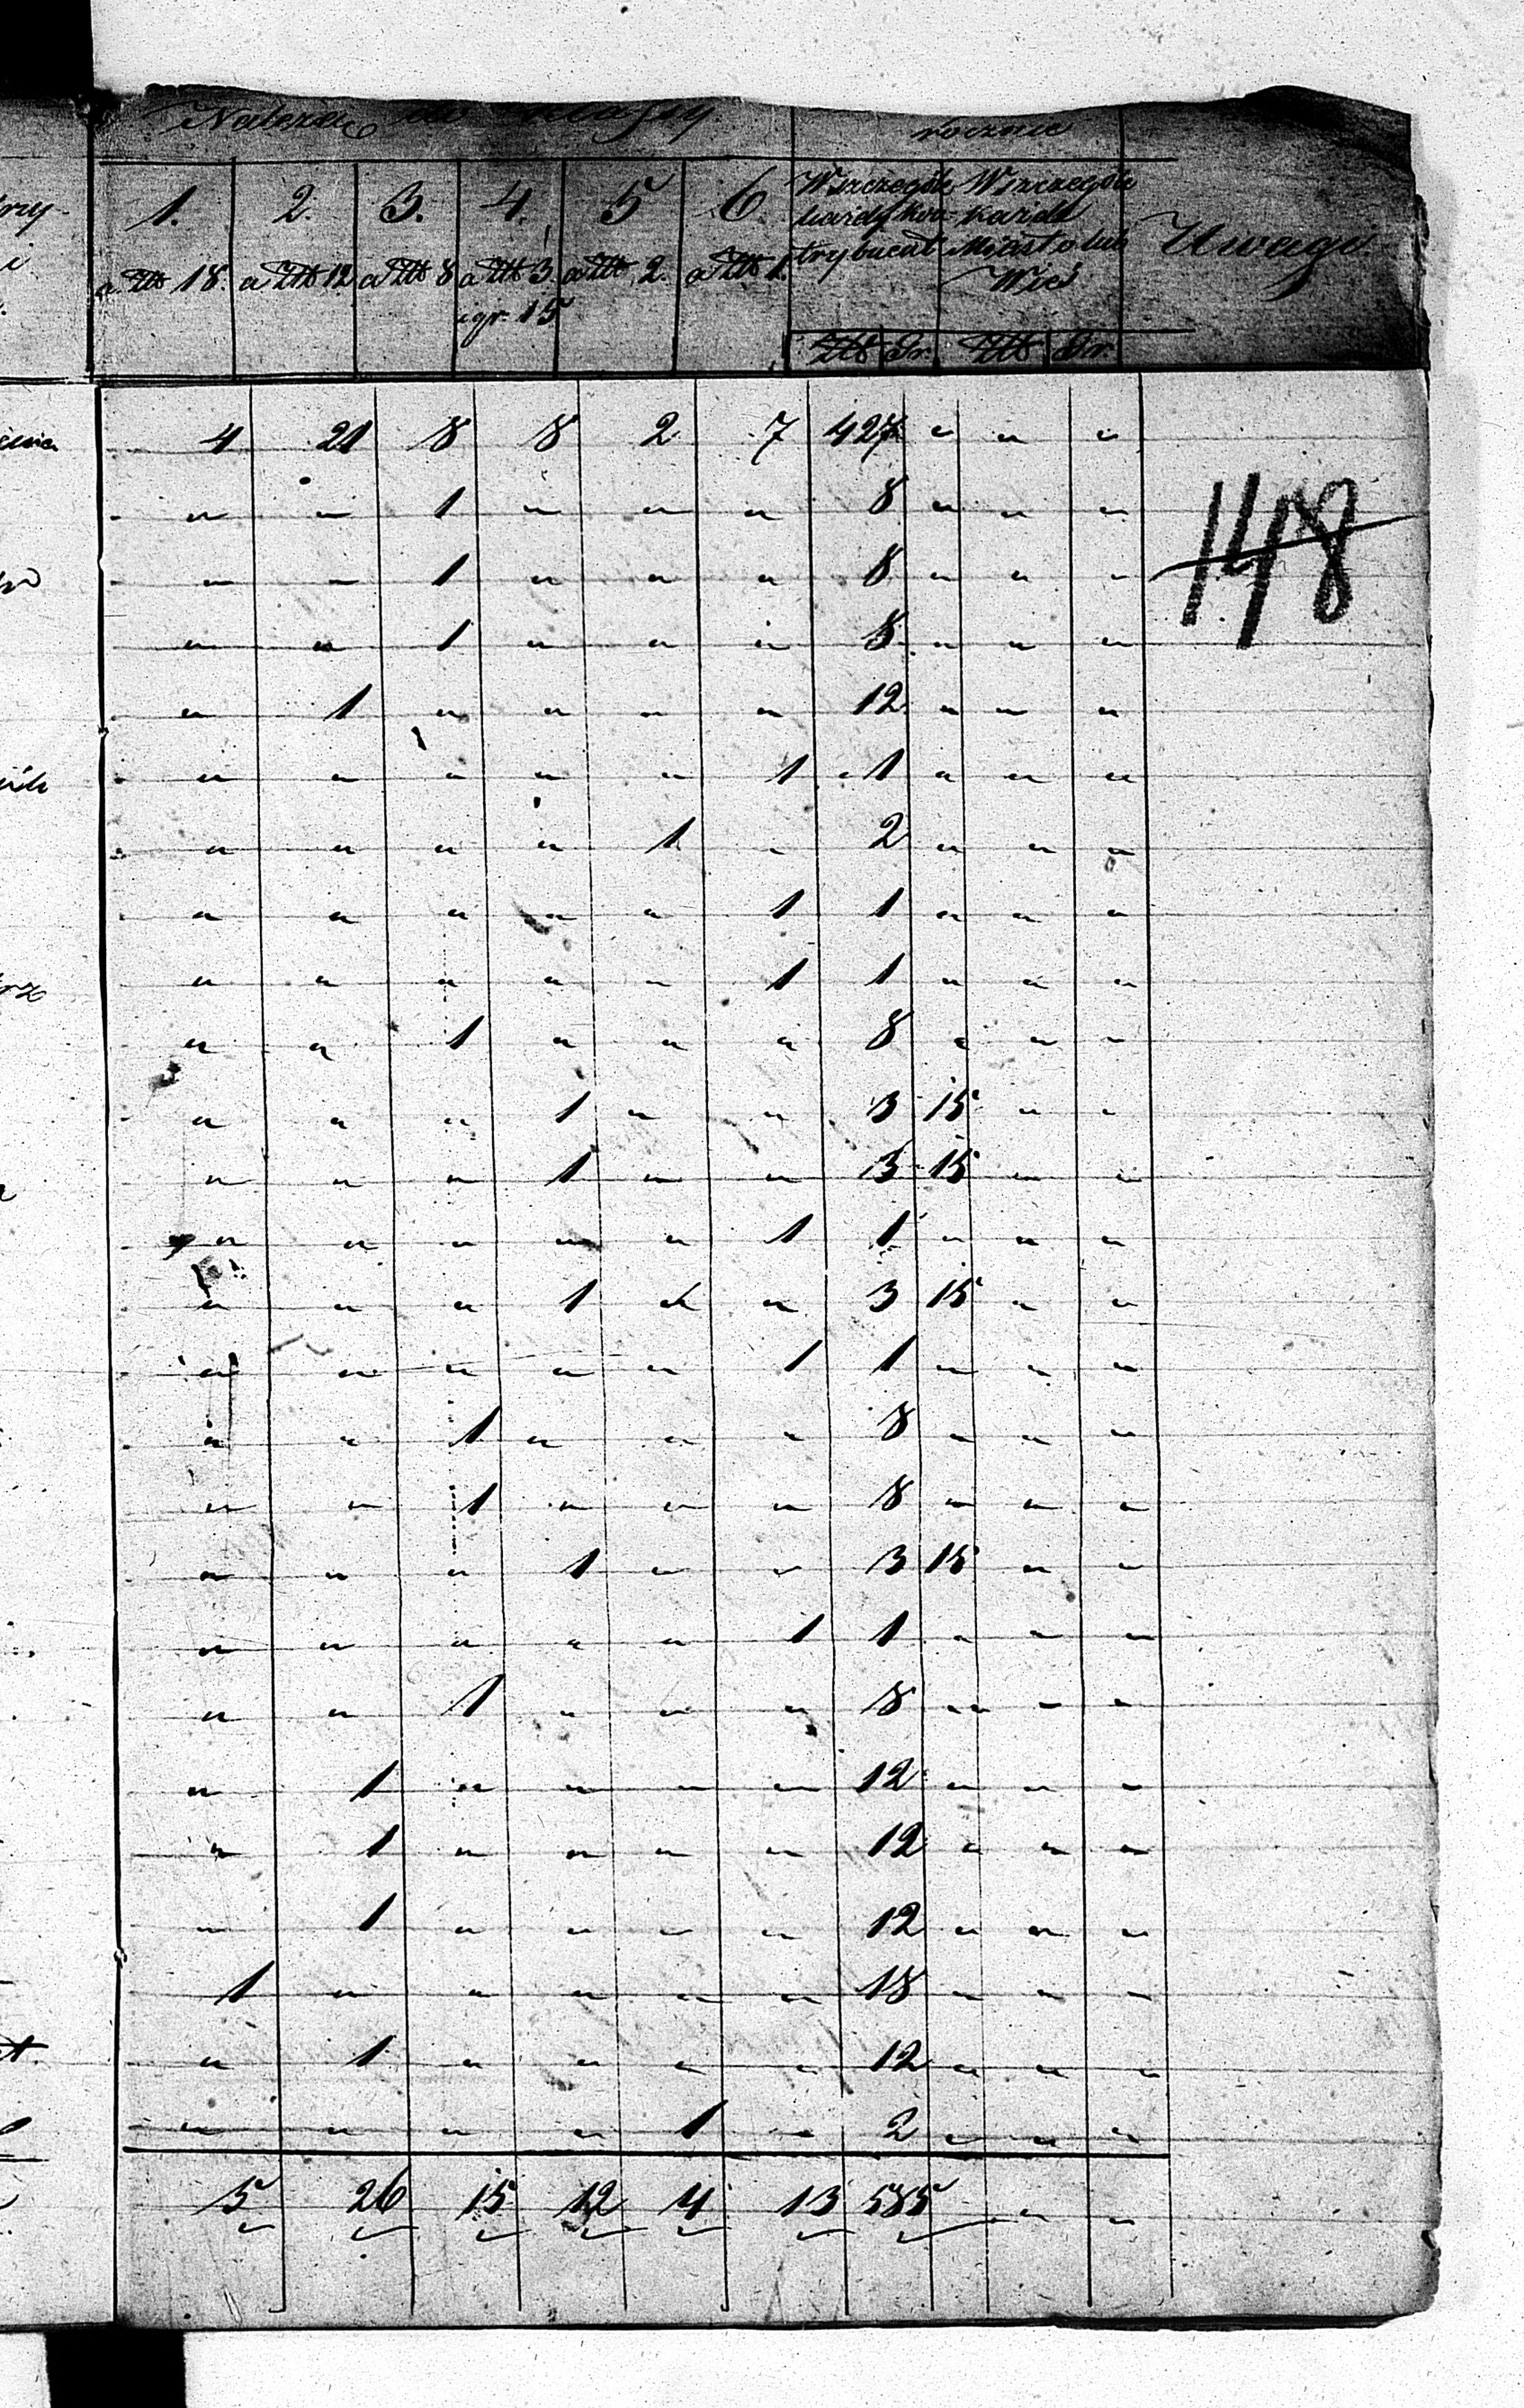 Należą do klassy. rocznie
1. 2. 3. 4. 5 6. Wszczególe Wszczególe Uwagi.
a Złt 18. a Złt 12. a Złt 8 a Złt 3. a Złt 2. a Złt 1. każdy kon- każde
trybuent Miasto lub
igr. 15 Wieś
Złt Gr. Złt Gr.
4 21 8 8 2 7 427 " " "
" " 1 " " " 8 " " "
148
" " 1 " " " 8 " " "
" " 1 " " " 8 " " "
" 1 " " " " 12 " " "
" " " " " 1 1 " " "
" " " " 1 " 2 " " "
" " " " " 1 1 " " "
" " " " " 1 1 " " "
" " 1 " " " 8 " " "
" " " 1 " " 3 15 " "
" " " 1 " " 3 15 " "
" " " " " 1 1 " " "
" " " 1 " " 3 15 " "
" " " " " 1 1 " " "
" " 1 " " " 8 " " "
" " 1 " " " 8 " " "
" " " 1 " " 3 15 " "
" " " " " 1 1 " " "
" " 1 " " " 8 " " "
" 1 " " " " 12 " " "
" 1 " " " " 12 " " "
" 1 " " " " 12 " " "
1 " " " " " 18 " " "
" 1 " " " " 12 " " "
" " " " 1 " 2 " " "
5 26 15 12 4 13 585 " "